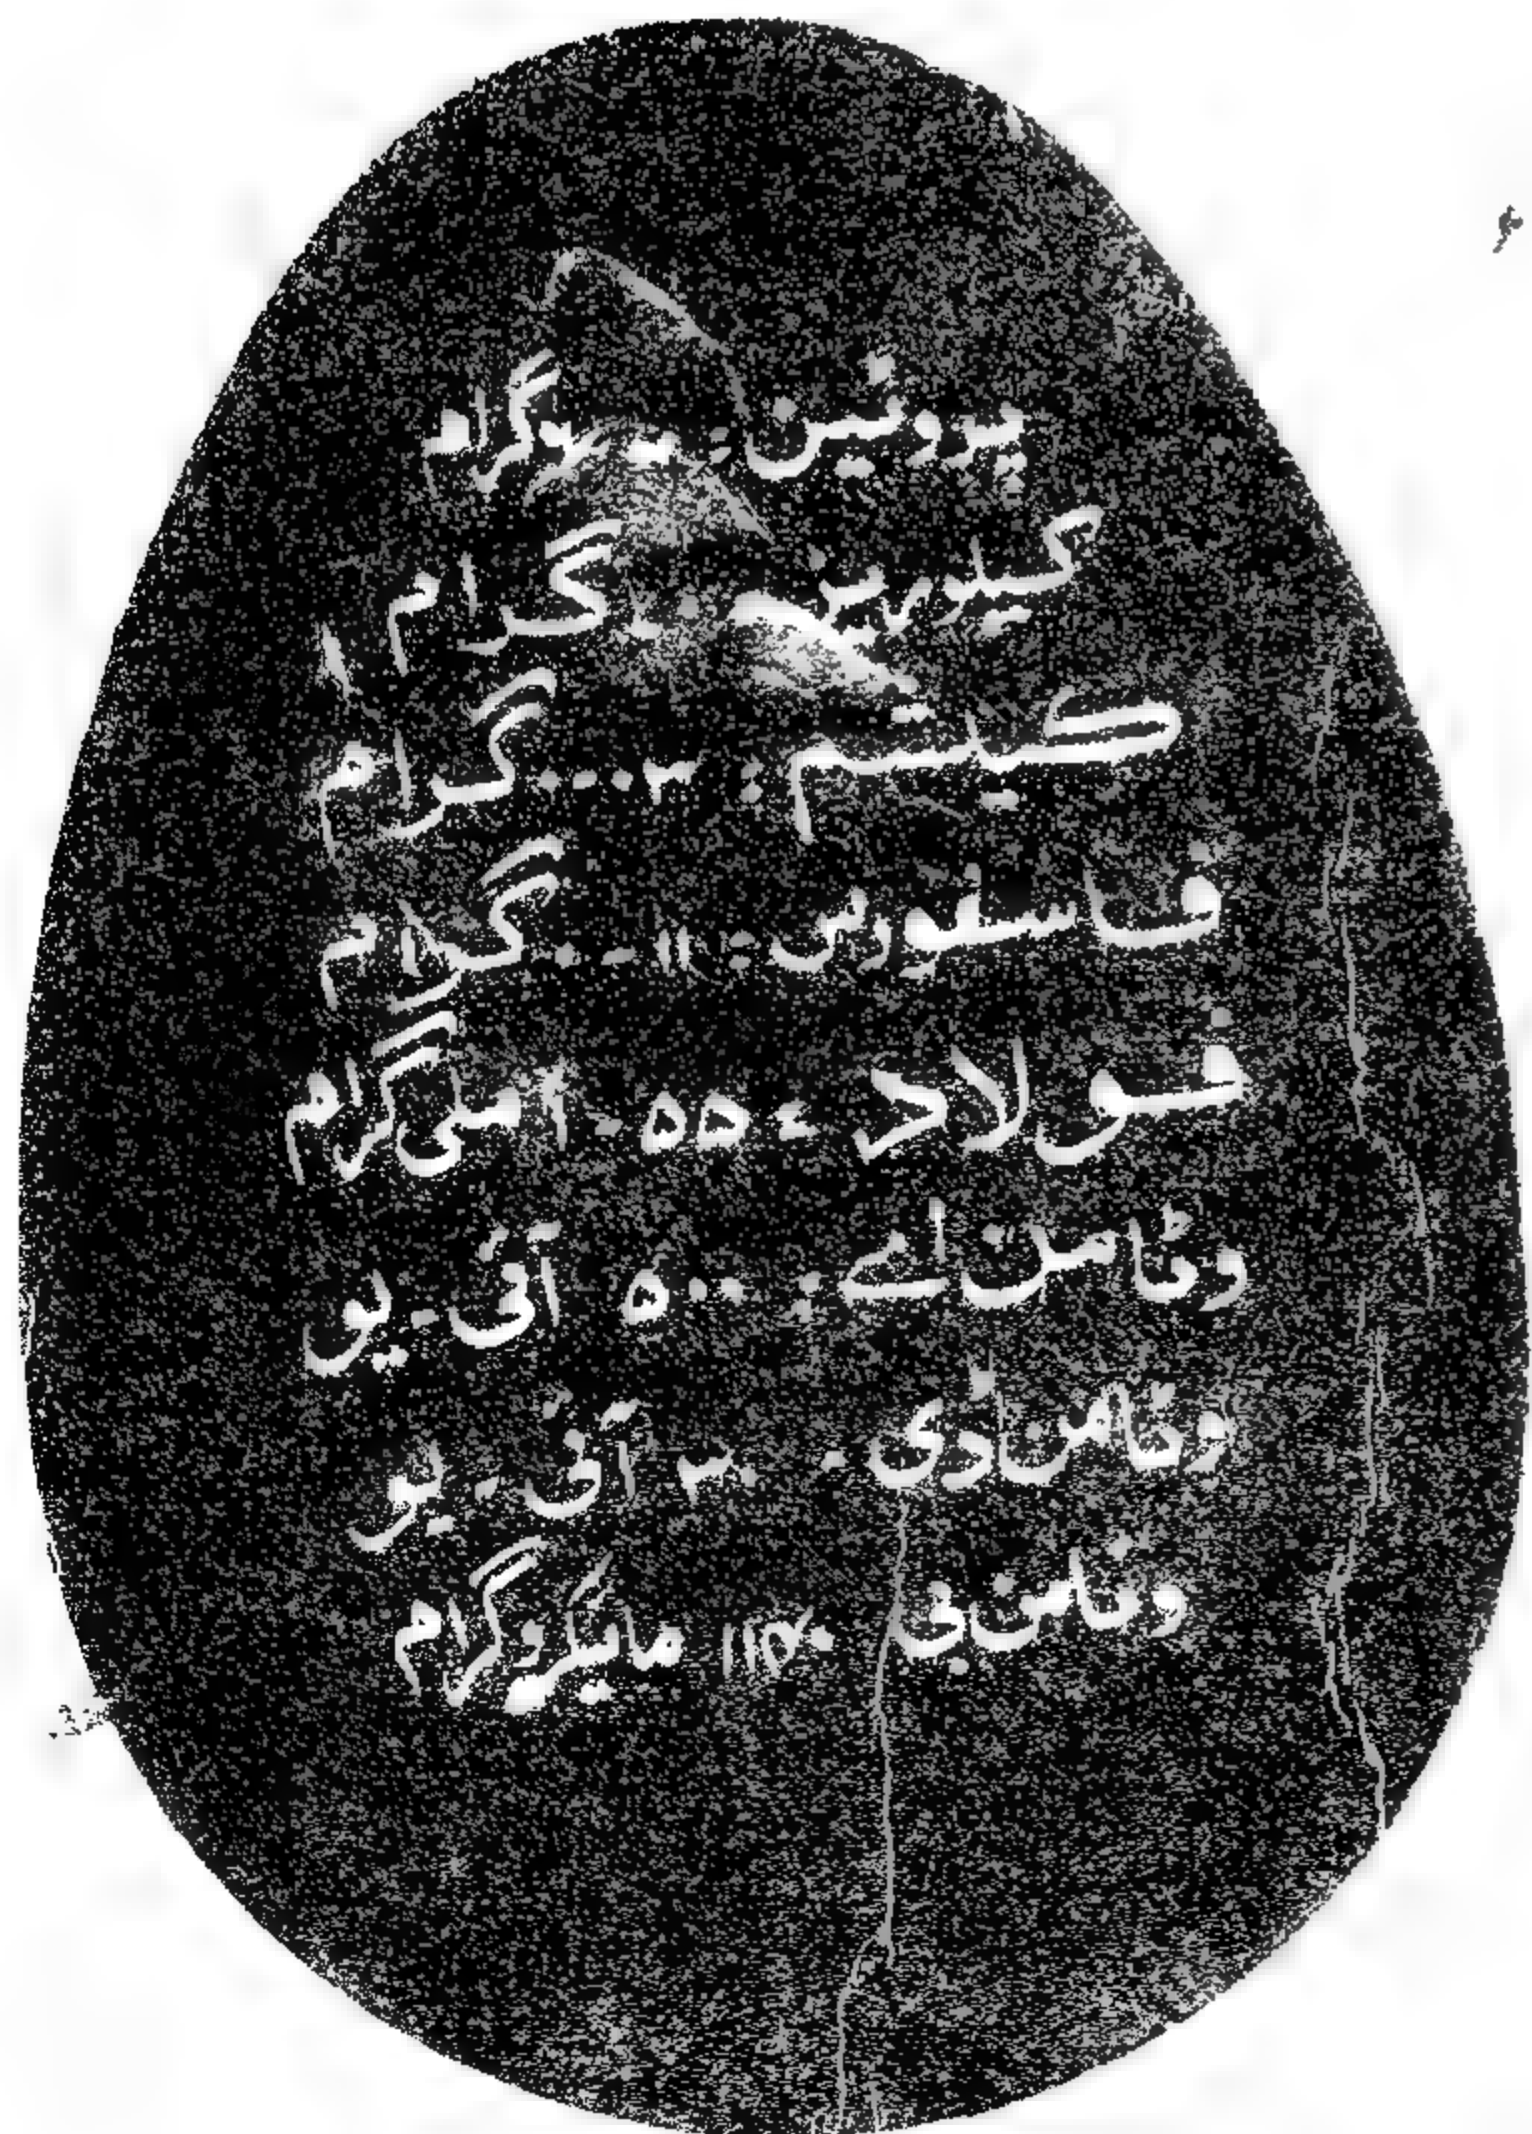 پروٹین : گرام
کیلوریز گرام
کیلشیم : ۰۳۰۰۰ گرام
فاسفورس : ۰۰-۱۱ گرام
فولاد : ۵۵-۱ ملی گرام
وٹامن اے : ۵۰۰ آئی-یو
وٹامن ڈی ۳۰ آئی-یو
وٹامن بی مائیکروگرام